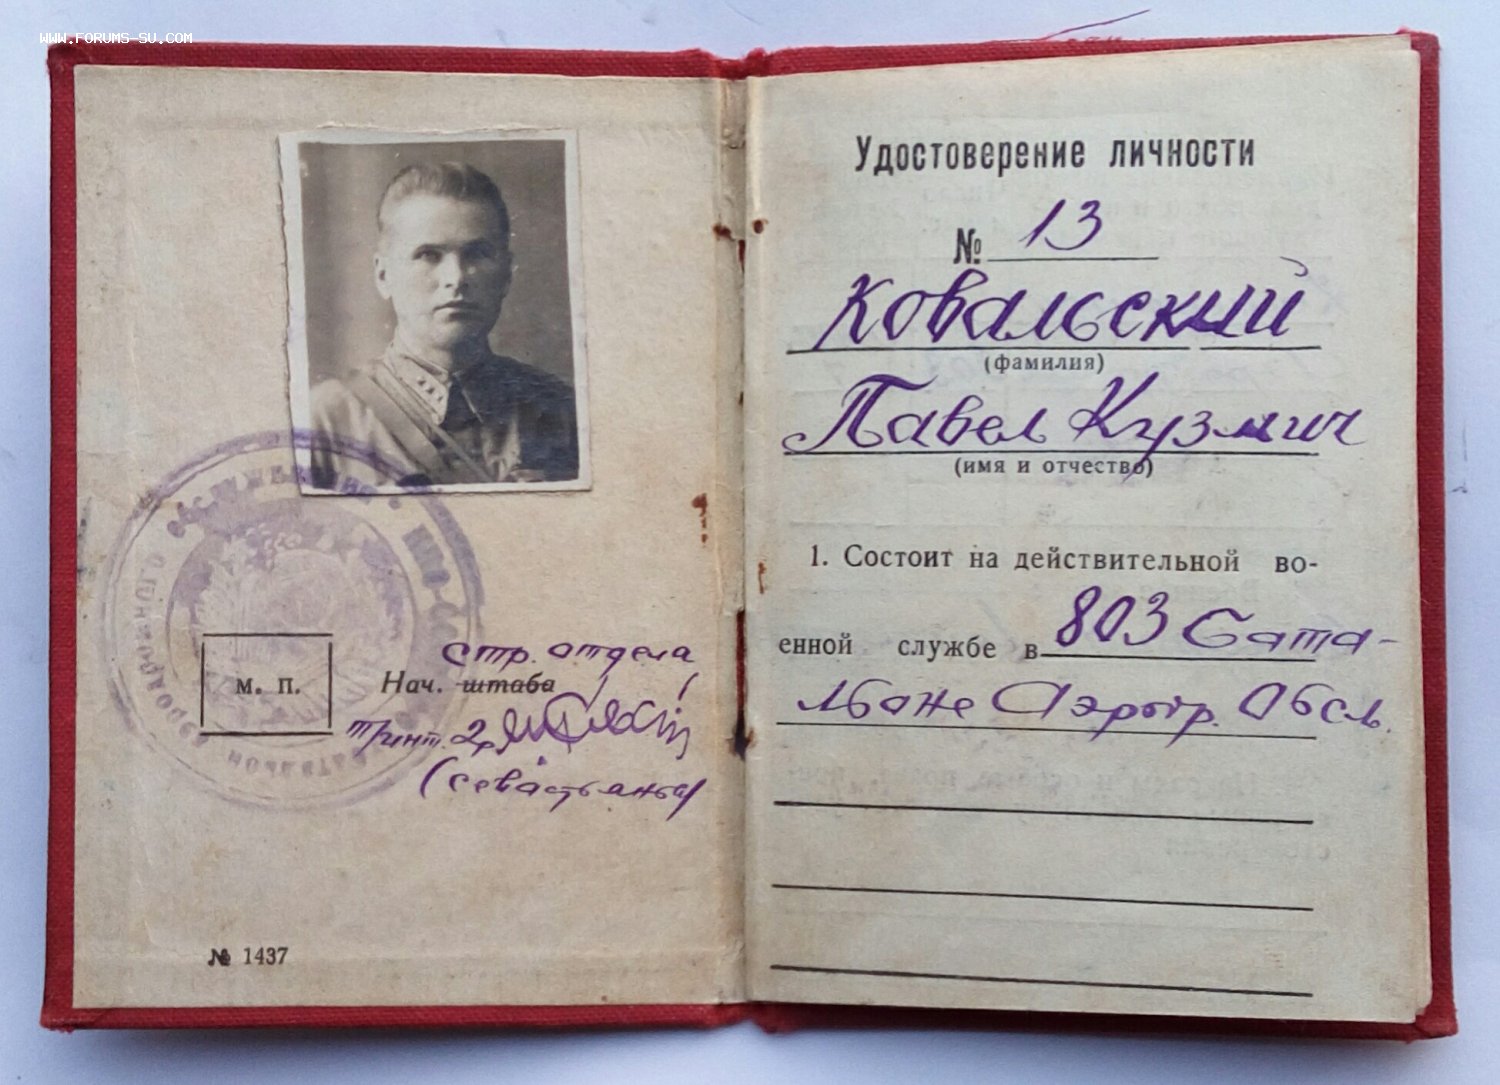 www.forums-su.com
обслуживания
батальон аэродромного
М. П.
стр. отдела
Нач. штаба
(Севастьянов)
№ 1437
Удостоверение личности
№ 13
Ковальский
(фамилия)
Павел Кузмич
(имя и отчество)
1. Состоит на действительной во-
енной службе в 803 Бата-
льоне Аэродр. Обсл.